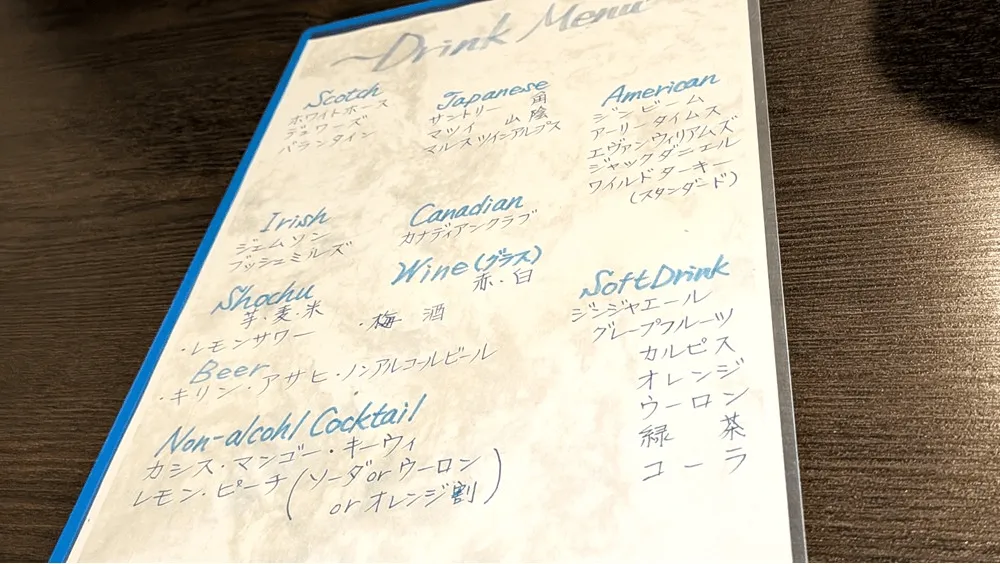 ~Drink Menu~
Scotch
ホワイトホース
デュワーズ
バランタイン
Japanese
サントリー 角
マツイ 山陰
マルスツインアルプス
American
ジンビーム
アーリータイムス
エヴァンウィリアムズ
ジャックダニエル
ワイルドターキー
(スタンダード)
Irish
ジェムソン
ブッシュミルズ
Canadian
カナディアンクラブ
Wine(グラス)
赤・白
Shochu
芋・麦・米
・レモンサワー ・梅酒
Beer
・キリン・アサヒ・ノンアルコールビール
Non-alcohl Cocktail
カシス・マンゴー・キーウィ
レモン・ピーチ(ソーダorウーロン
orオレンジ割)
SoftDrink
ジンジャエール
グレープフルーツ
カルピス
オレンジ
ウーロン
緑茶
コーラ